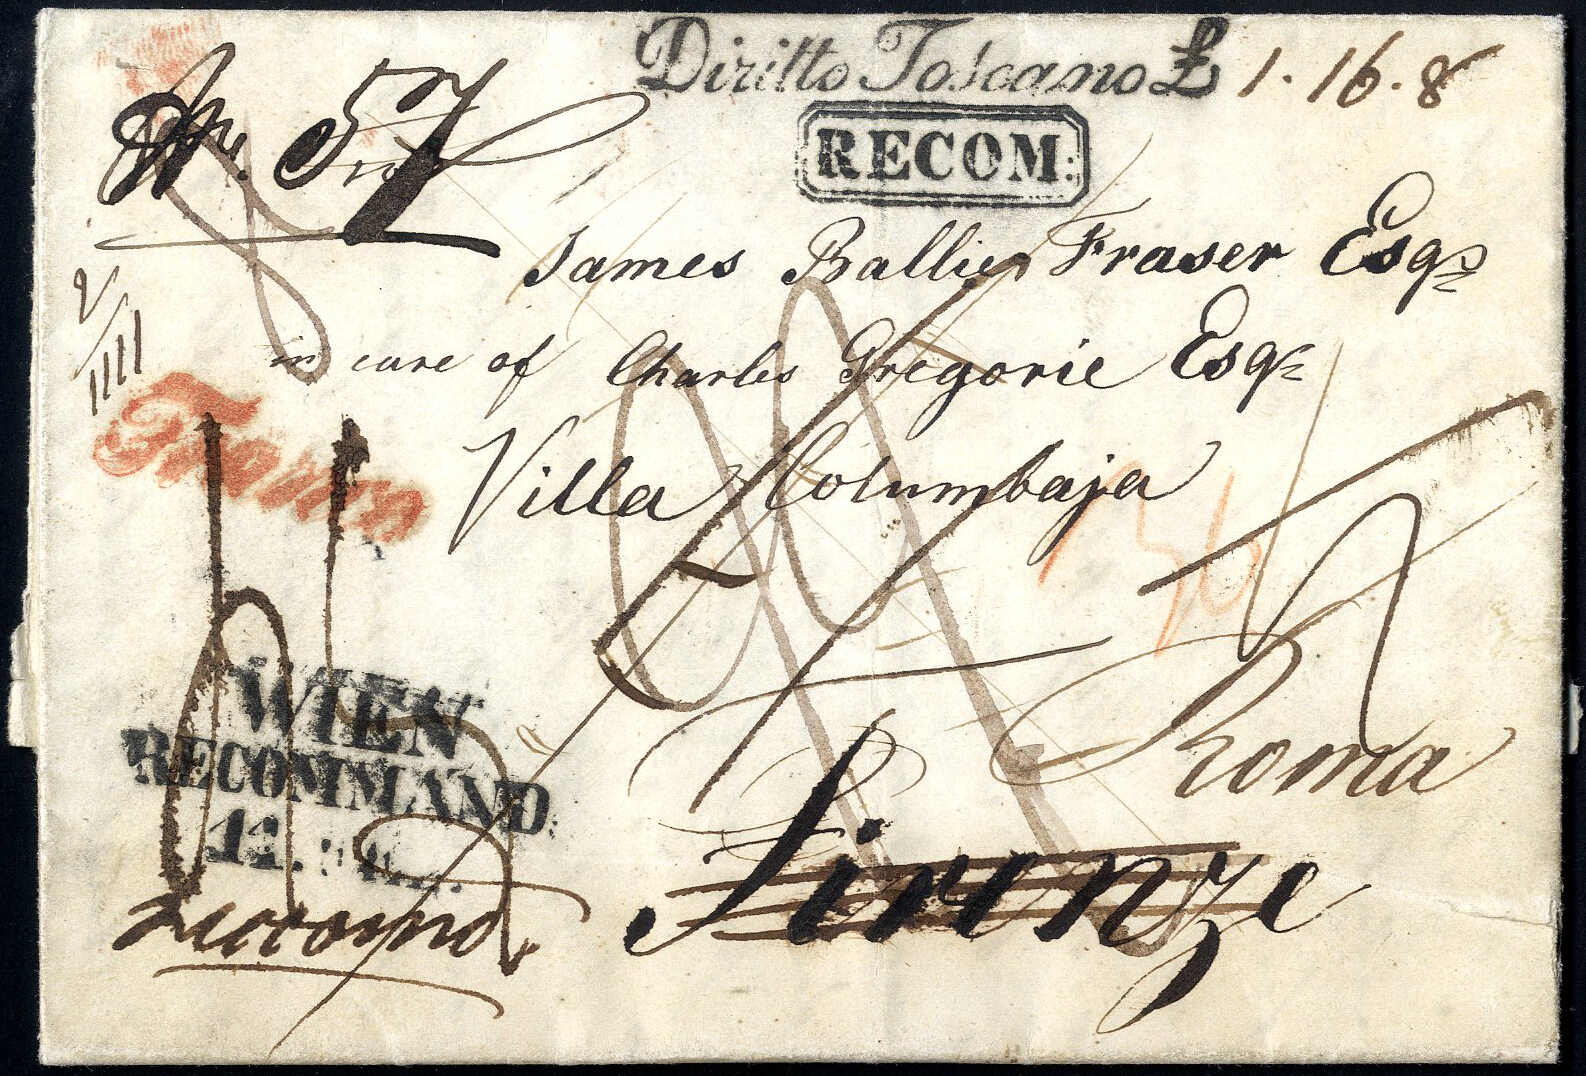 Diritto Toscano £ 1.16.8
No. 57
RECOM:
James Ballie Fraser Esqr
in care of Charles Gregorie Esqr
Franco
Villa Columbaja
WIEN
RECOMMAND:
11.
Roma
Firenze